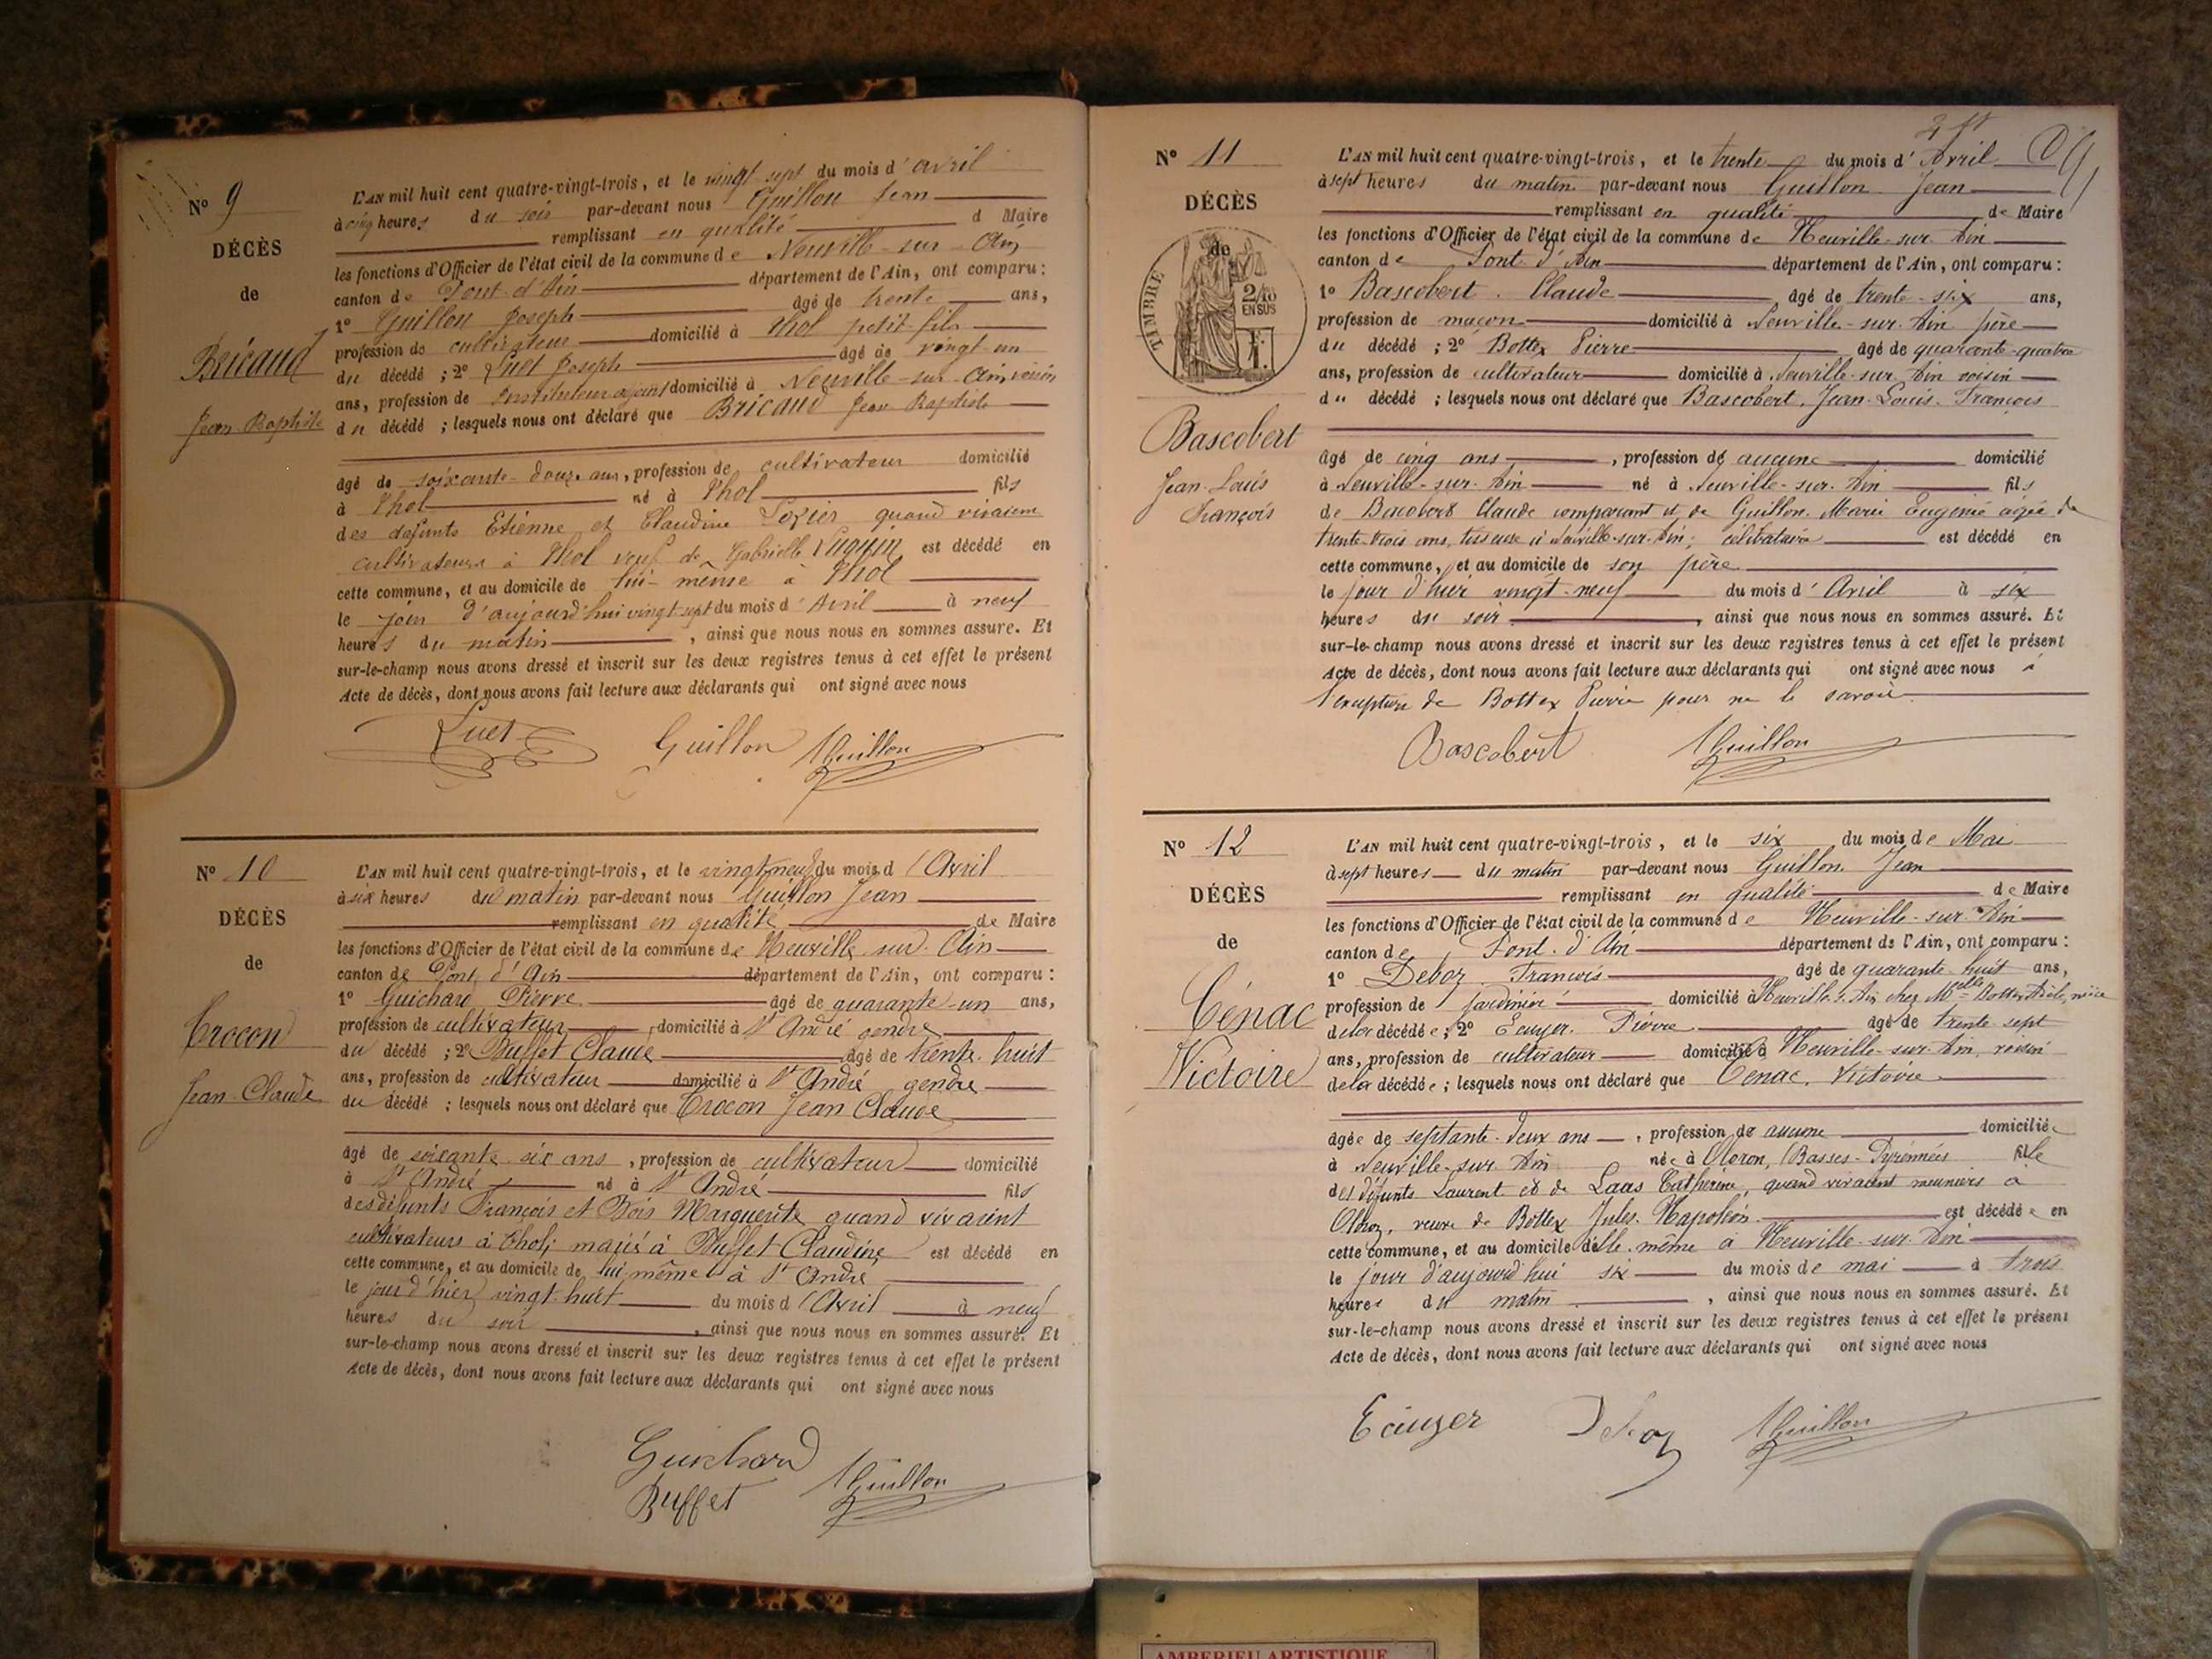 Nº 9
DÉCÈS
de
Bricaud
Jean Baptiste
L'AN mil huit cent quatre-vingt-trois, et le vingt sept du mois d'avril
à cinq heures du soir par-devant nous Guillon Jean
remplissant en qualité d Maire
les fonctions d'Officier de l'état civil de la commune de Neuville-sur-Ain
canton de Pont-d'Ain département de l'Ain, ont comparu :
1º Guillon Joseph âgé de trente ans,
profession de cultivateur domicilié à Thol petit-fils
du décédé ; 2º Luet Joseph âgé de vingt-un
ans, profession de Instituteur adjoint domicilié à Neuville-sur-Ain voisin
du décédé ; lesquels nous ont déclaré que Bricaud Jean Baptiste
âgé de soixante-douze ans, profession de cultivateur domicilié
à Thol né à Thol fils
des défunts Etienne et Claudine quand vivaient
cultivateurs à Thol veuf de Gabrielle est décédé en
cette commune, et au domicile de lui-même à Thol
le jour d'aujourd'hui vingt sept du mois d'Avril à neuf
heures du matin, ainsi que nous nous en sommes assuré. Et
sur-le-champ nous avons dressé et inscrit sur les deux registres tenus à cet effet le présent
Acte de décès, dont nous avons fait lecture aux déclarants qui ont signé avec nous
Luet Guillon Guillon
Nº 10
DÉCÈS
de
Crocon
Jean-Claude
L'AN mil huit cent quatre-vingt-trois, et le vingt neuf du mois d'Avril
à six heures du matin par-devant nous Guillon Jean
remplissant en qualité de Maire
les fonctions d'Officier de l'état civil de la commune de Neuville sur Ain
canton de Pont d'Ain département de l'Ain, ont comparu :
1º Guichard Pierre âgé de quarante-un ans,
profession de cultivateur, domicilié à St André gendre
du décédé ; 2º Buffet Claude âgé de trente-huit
ans, profession de cultivateur domicilié à St André gendre
du décédé ; lesquels nous ont déclaré que Crocon Jean Claude
âgé de soixante-six ans, profession de cultivateur domicilié
à St André né à St André fils
des défunts François et Bois Marguerite quand vivaient
cultivateurs à Thol; marié à Buffet Claudine est décédé en
cette commune, et au domicile de lui même à St André
le jour d'hier vingt-huit du mois d'Avril à neuf
heures du soir, ainsi que nous nous en sommes assuré. Et
sur-le-champ nous avons dressé et inscrit sur les deux registres tenus à cet effet le présent
Acte de décès, dont nous avons fait lecture aux déclarants qui ont signé avec nous
Guichard
Buffet Guillon
Nº 11
DÉCÈS
de
TIMBRE
2/10
EN SUS
Bascobert
Jean-Louis
François
L'AN mil huit cent quatre-vingt-trois, et le trente du mois d'Avril
à sept heures du matin par-devant nous Guillon Jean
remplissant en qualité de Maire
les fonctions d'Officier de l'état civil de la commune de Neuville-sur-Ain
canton de Pont d'Ain département de l'Ain, ont comparu :
1º Bascobert Claude, âgé de trente-six ans,
profession de maçon domicilié à Neuville-sur-Ain père
du décédé ; 2º Bottex Pierre, âgé de quarante-quatre
ans, profession de cultivateur domicilié à Neuville-sur-Ain voisin
du décédé ; lesquels nous ont déclaré que Bascobert, Jean-Louis-François
âgé de cinq ans, profession de aucune domicilié
à Neuville-sur-Ain né à Neuville-sur-Ain fils
de Bacobert Claude comparant et de Guillon Marie Eugénie âgée de
trente-trois ans, tisseuse à Neuville-sur-Ain; célibataire est décédé en
cette commune, et au domicile de son père
le jour d'hier vingt-neuf du mois d'Avril à six
heures du soir, ainsi que nous nous en sommes assuré. Et
sur-le-champ nous avons dressé et inscrit sur les deux registres tenus à cet effet le présent
Acte de décès, dont nous avons fait lecture aux déclarants qui ont signé avec nous à
l'exception de Bottex Pierre pour ne le savoir
Bascobert Guillon
Nº 12
DÉCÈS
de
Cénac
Victoire
L'AN mil huit cent quatre-vingt-trois, et le six du mois de Mai
à sept heures du matin par-devant nous Guillon Jean
remplissant en qualité de Maire
les fonctions d'Officier de l'état civil de la commune de Neuville-sur-Ain
canton de Pont d'Ain département de l'Ain, ont comparu :
1º Deboz François âgé de quarante-huit ans,
profession de jardinier domicilié à Neuville s. Ain chez Melle Bottex nièce
de la décédée ; 2º Ecuyer Pierre âgé de trente-sept
ans, profession de cultivateur domicilié à Neuville-sur-Ain, voisin
de la décédée ; lesquels nous ont déclaré que Cénac, Victoire
âgée de septante-deux ans, profession de aucune domiciliée
à Neuville-sur-Ain née à Oloron, (Basses-Pyrénnées fille
des défunts Laurent et de Laas Catherine, quand vivaient meuniers à
Oloron, veuve de Bottex Jules-Napoléon est décédée en
cette commune, et au domicile d'elle-même à Neuville-sur-Ain
le jour d'aujourd'hui six du mois de mai à trois
heures du matin, ainsi que nous nous en sommes assuré. Et
sur-le-champ nous avons dressé et inscrit sur les deux registres tenus à cet effet le présent
Acte de décès, dont nous avons fait lecture aux déclarants qui ont signé avec nous
Ecuyer Deboz Guillon
AMBERIEU ARTISTIQUE